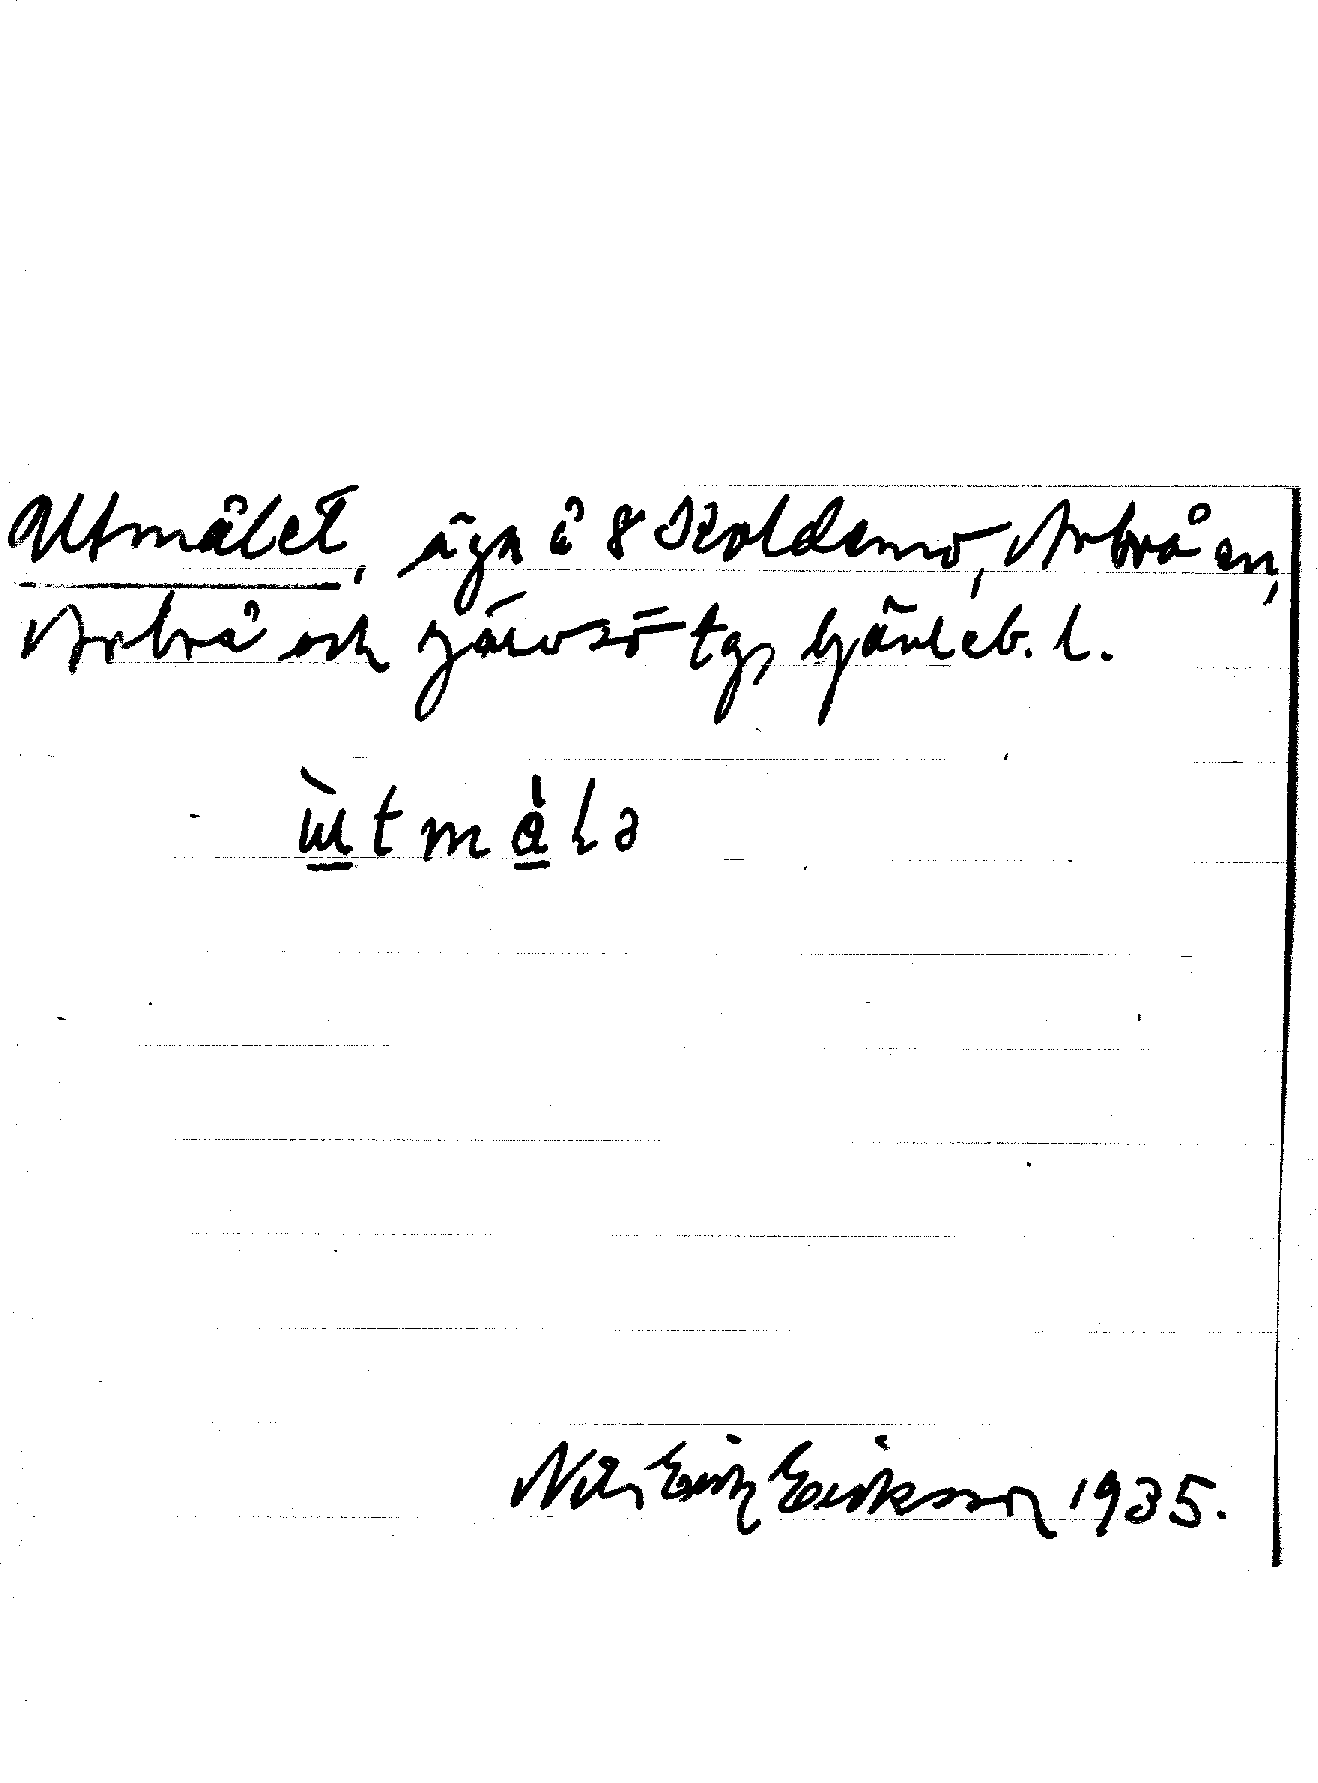 Utmålet, äga å 8 Koldemo, Arbrå sn,
Arbrå och Järvsö tg, Gävleb. l.
ɯ̀tmàlə
Nils Erik Eriksson 1935.